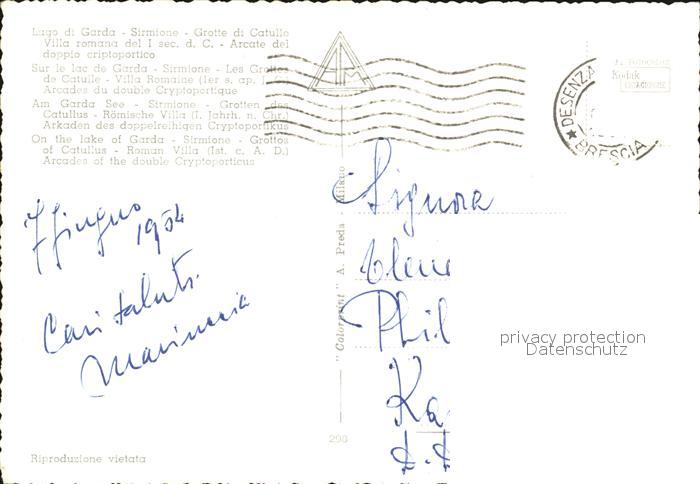 Lago di Garda - Sirmione - Grotte di Catullo
Villa romana del I sec. d. C. - Arcate del
doppio criptoportico
Sur le lac de Garda - Sirmione - Les Grottes
de Catulle - Villa Romaine (1er s. ap.
Arcades du double Cryptoportique
Am Garda See - Sirmione - Grotten des
Catullus - Römische Villa (I. Jahrh. n. Chr.)
Arkaden des doppelreihigen Cryptoportikus
On the lake of Garda - Sirmione - Grottos
of Catullus - Roman Villa (Ist. c. A. D.)
Arcades of the double Cryptoporticus
Kodak
DESENZA
BRESCIA
7 Giugno
1954
Cari saluti
"Colorprint" A. Preda - Milano
Signora
Phil
Ka
privacy protection
Datenschutz
290
Riproduzione vietata